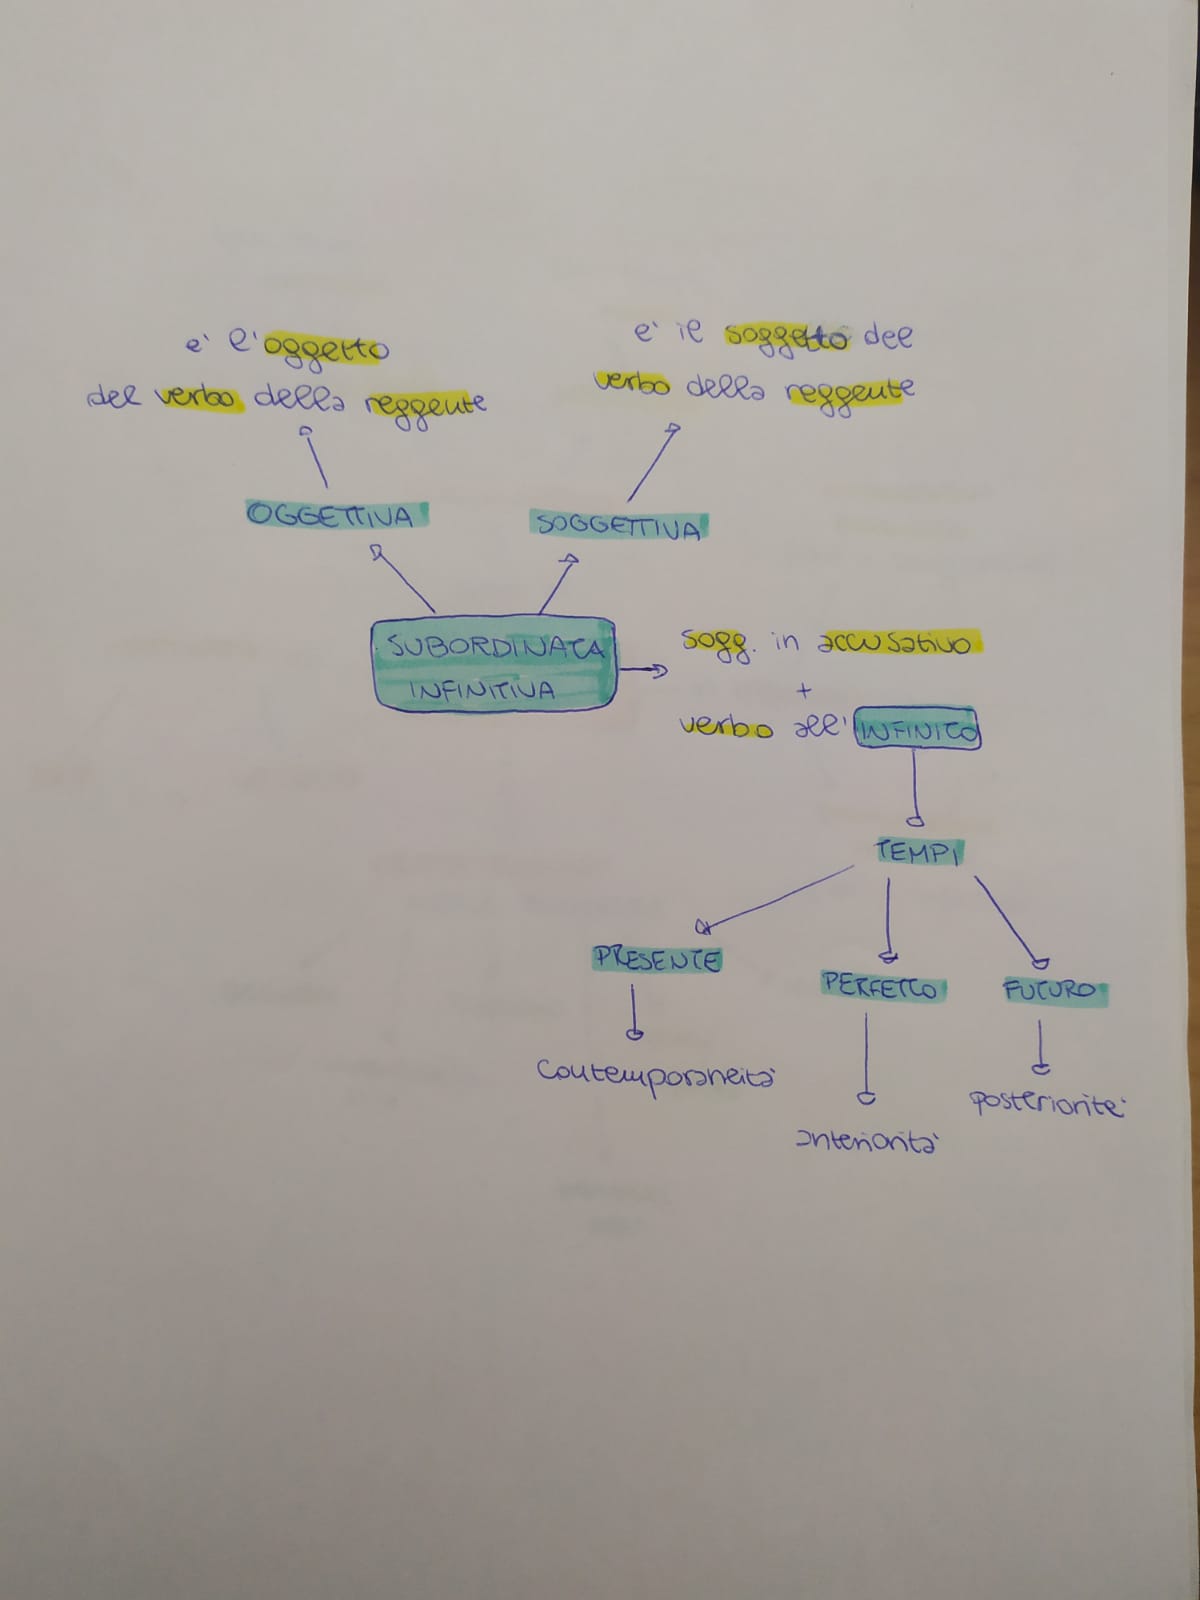 e' l'oggetto
del verbo della reggente
e' il soggetto del
verbo della reggente
OGGETTIVA
SOGGETTIVA
SUBORDINATA
INFINITIVA
sogg. in accusativo
+
verbo all' INFINITO
TEMPI
PRESENTE
PERFETTO
FUTURO
contemporaneità
anteriorità
posteriorità